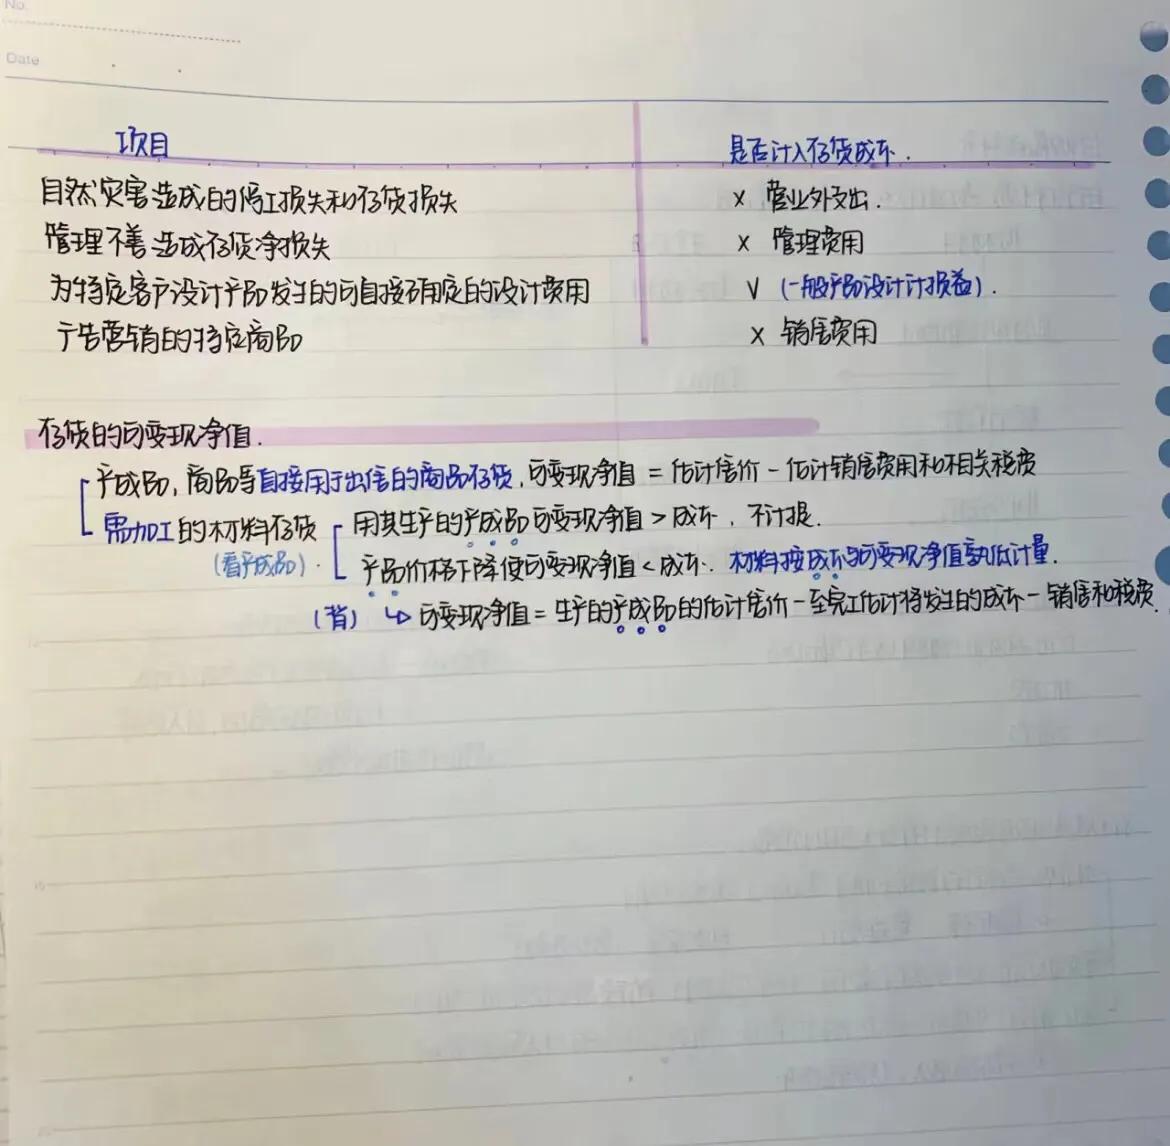 No.
Date
项目 是否计入存货成本.
自然灾害造成的停工损失和存货损失 × 营业外支出.
管理不善造成存货净损失 × 管理费用
为特定客户设计产品发生的可直接确定的设计费用 √ (一般产品设计计损益).
广告营销的特定商品 × 销售费用
存货的可变现净值.
产成品, 商品等直接用于出售的商品存货, 可变现净值 = 估计售价 - 估计销售费用和相关税费
需加工的材料存货 用其生产的产成品可变现净值 > 成本, 不计提.
(看产成品). 产品价格下降使可变现净值 < 成本. 材料按成本与可变现净值孰低计量.
(背) ↳ 可变现净值 = 生产的产成品的估计售价 - 至完工估计将发生的成本 - 销售和税费.